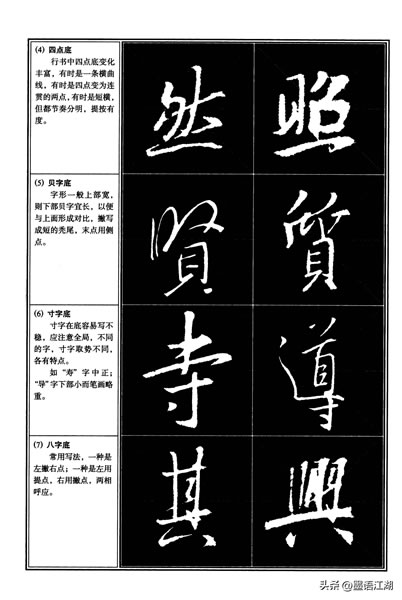 (4) 四点底
行书中四点底变化
丰富,有时是一条横曲
线,有时是四点变为连
贯的两点,有时是短横,
但都节奏分明,提按有
度。
然 照
(5) 贝字底
字形一般上部宽,
则下部贝字宜长,以便
与上面形成对比,撇写
成短的秃尾,末点用侧
点。
賢 質
(6) 寸字底
寸字在底容易写不
稳,应注意全局,不同
的字,寸字取势不同,
各有特点。
如“寿”字中正;
“导”字下部小而笔画略
重。
寺 導
(7) 八字底
常用写法,一种是
左撇右点;一种是左用
提点,右用撇点,两相
呼应。
其 興
头条 @墨语江湖